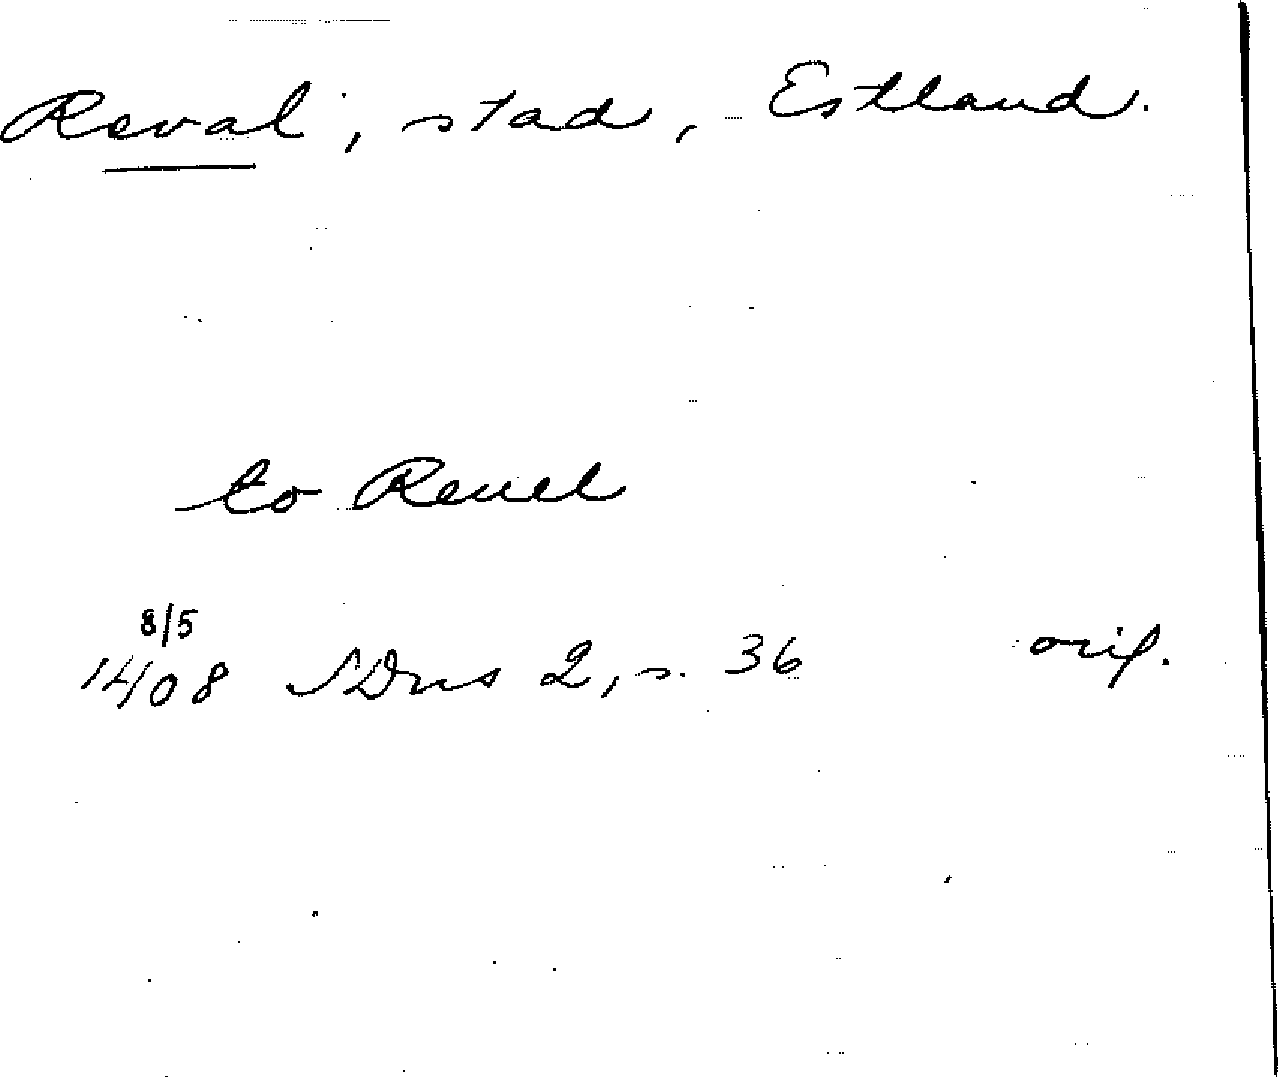 Reval, stad, Estland.
to Reuel
8/5
1408 SDns 2, s. 36 orig.